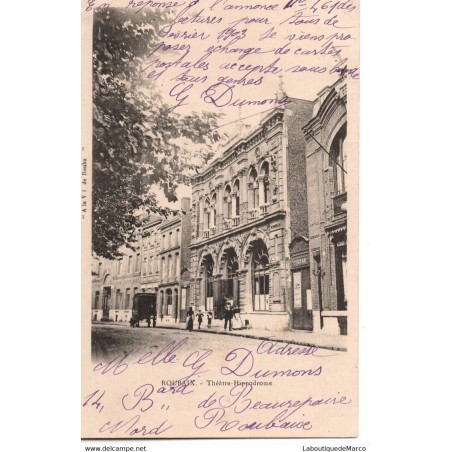 En réponse à l'annonce N° 461 des
lectures pour tous de
Février 1903 Je viens pro
poser échange de cartes
postales accepte sous bande
et tous genres
G Dumons
" A la V de Roubaix "
Adresse
Melle G Dumons
ROUBAIX. - Théâtre-Hippodrome
14, Bard de Beaurepaire
Nord Roubaix
LaboutiquedeMarco.com